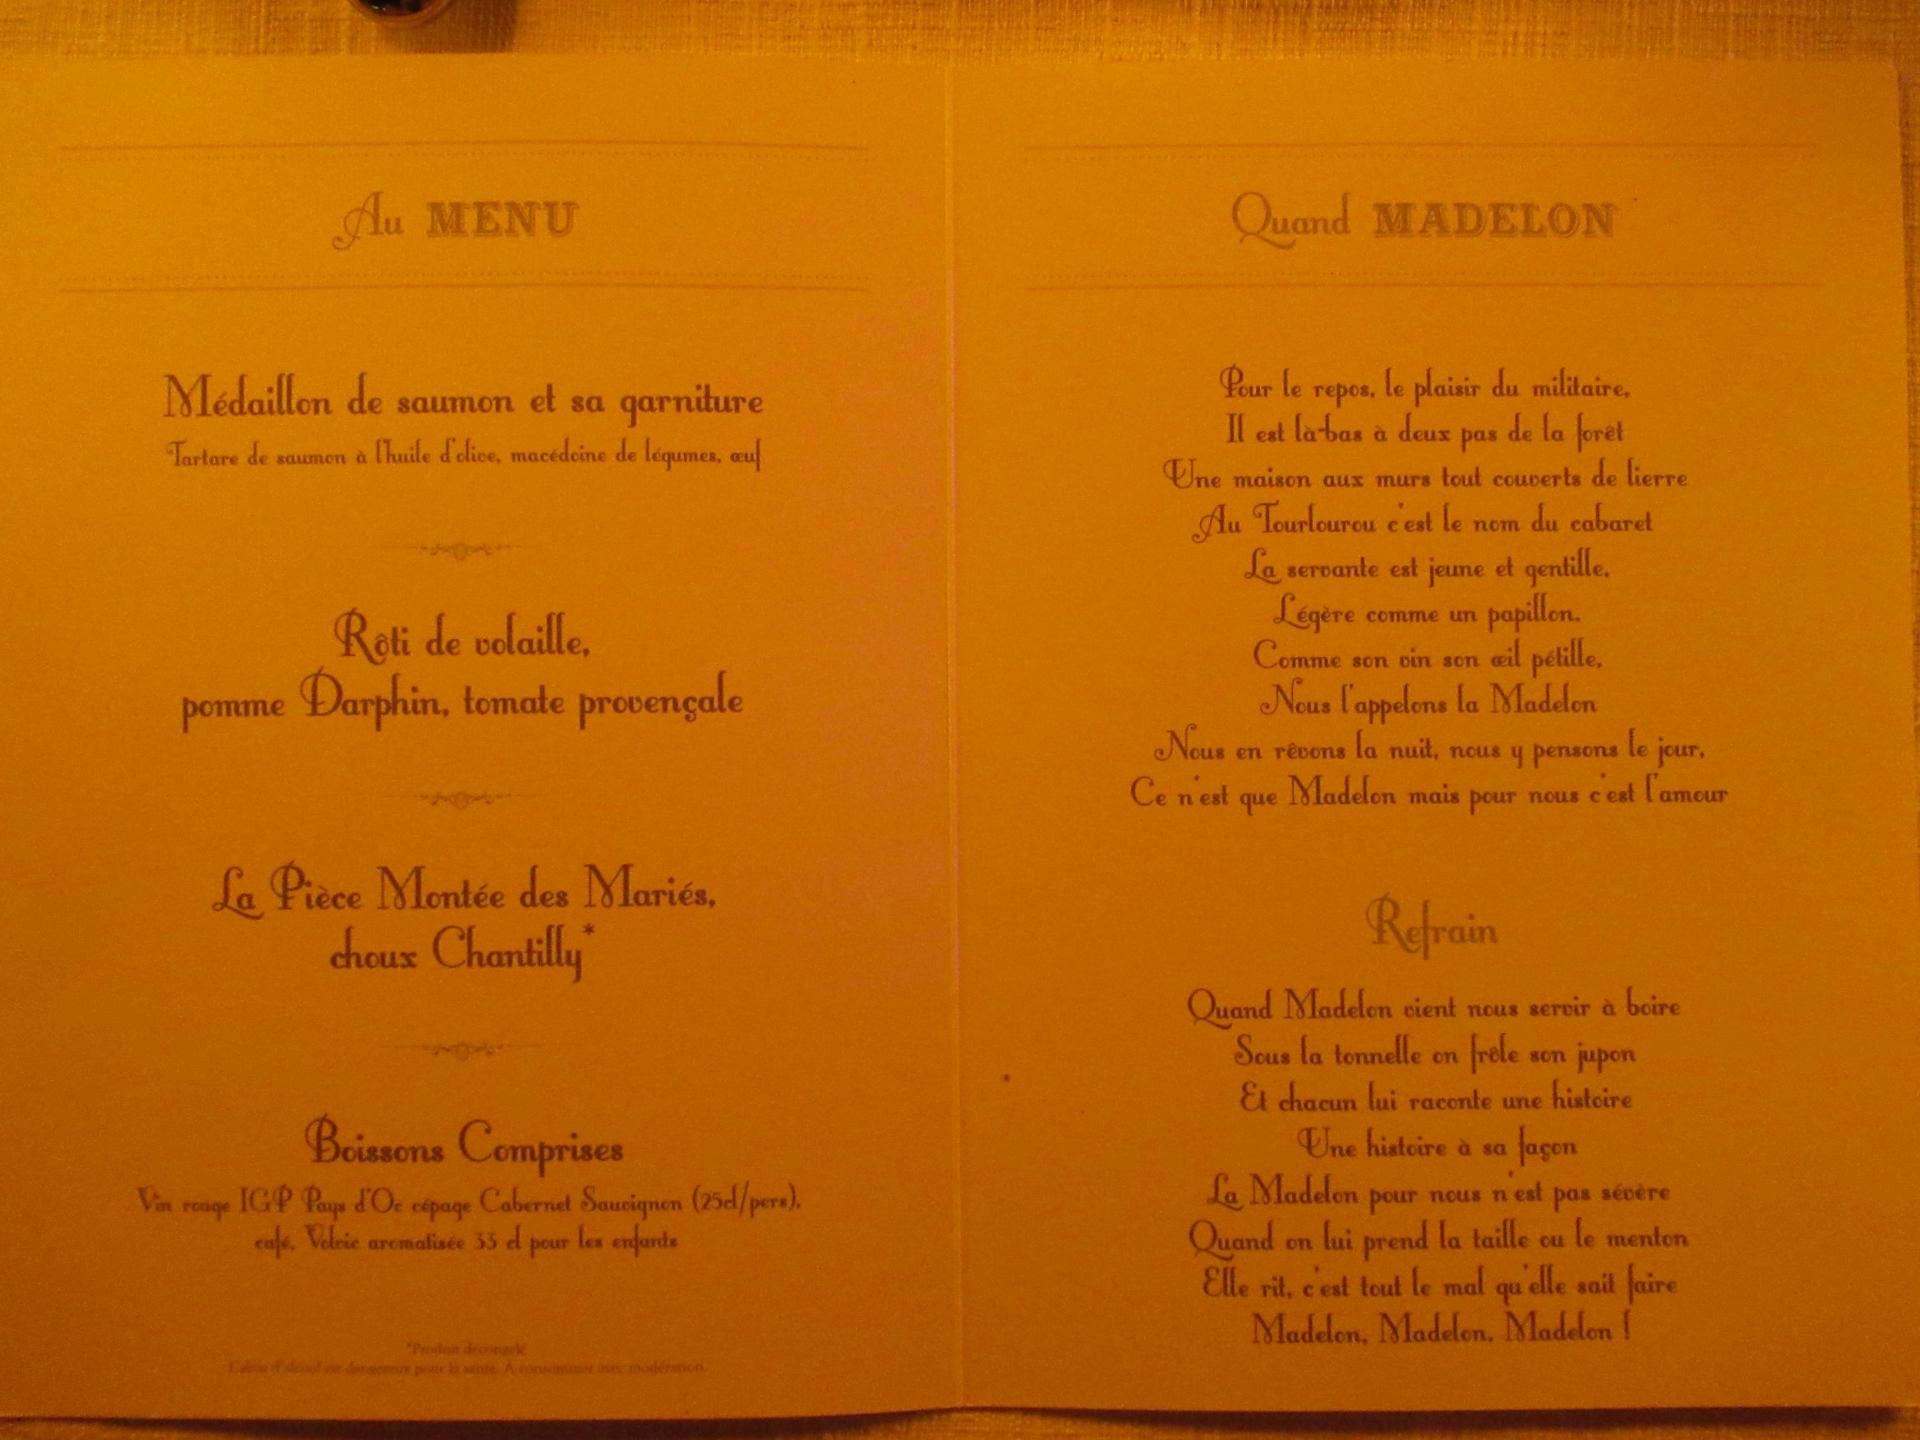 Au MENU
Médaillon de saumon et sa garniture
Tartare de saumon à l'huile d'olive, macédoine de légumes, œuf
Rôti de volaille,
pomme Darphin, tomate provençale
La Pièce Montée des Mariés,
choux Chantilly*
Boissons Comprises
Vin rouge IGP Pays d'Oc cépage Cabernet Sauvignon (25cl/pers),
café, Volvic aromatisée 33 cl pour les enfants
*Produit décongelé
L'abus d'alcool est dangereux pour la santé. A consommer avec modération.
Quand MADELON
Pour le repos, le plaisir du militaire,
Il est là-bas à deux pas de la forêt
Une maison aux murs tout couverts de lierre
Au Tourlourou c'est le nom du cabaret
La servante est jeune et gentille,
Légère comme un papillon.
Comme son vin son œil pétille,
Nous l'appelons la Madelon
Nous en rêvons la nuit, nous y pensons le jour,
Ce n'est que Madelon mais pour nous c'est l'amour
Refrain
Quand Madelon vient nous servir à boire
Sous la tonnelle on frôle son jupon
Et chacun lui raconte une histoire
Une histoire à sa façon
La Madelon pour nous n'est pas sévère
Quand on lui prend la taille ou le menton
Elle rit, c'est tout le mal qu'elle sait faire
Madelon, Madelon, Madelon !